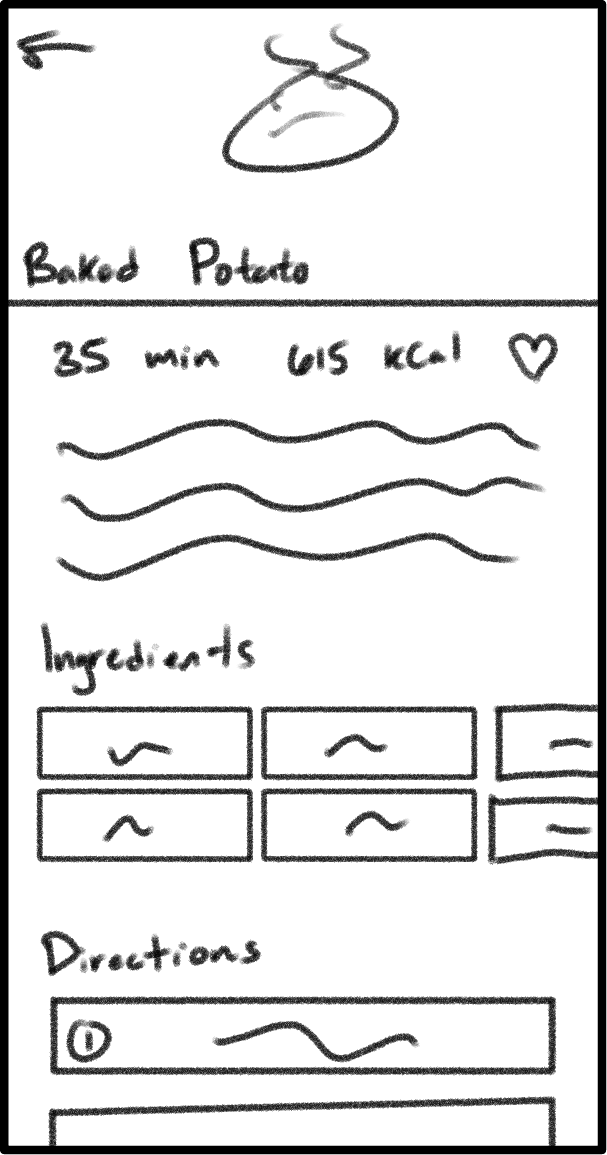 Baked Potato
35 min 615 kcal
Ingredients
Directions
1